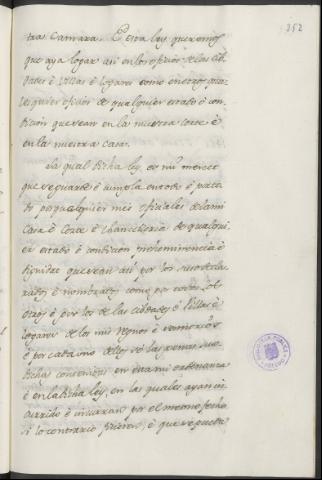 252
tra Camara. E esta ley queremos
que aya logar asi en los ofiçios de las cib
dades é Villas é logares como en otros qua
lesquier ofiçios de qualquier estado é con
diçion que sean en la nuestra corte é
en la nuestra casa.
La qual dicha ley, es mi merced
que se guarde é cumpla en todo é por to
do por qualesquier mis ofiçiales de la mi
Casa é Corte é Chancilleria de qualqui
er estado é condiçion preheminençia é
dignidad que sean asi por los suso decla
rados é nombrados como por todos los
otros é por los de las cibdades é Villas é
logares de los mis regnos é señorios
é por cada uno de ellos so las penas suso
dichas contenidas en esta mi ordenança
é en la dicha ley, en las quales ayan in
currido é incurran por el mesmo fecho
si lo contrario ficieren, é que se pueda